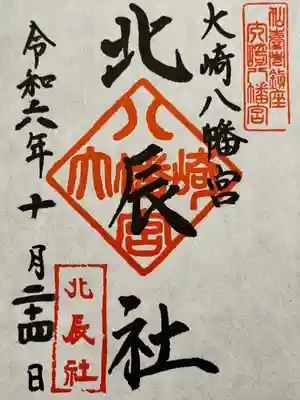 仙臺巷鎮座
大崎八幡宮
大崎八幡宮
北辰社
八
大幡崎
宮
令和六年十月二十四日
北辰社